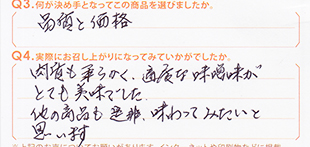 Q3.何が決め手となってこの商品を選びましたか。
品質と価格
Q4.実際にお召し上がりになってみていかがでしたか。
肉質も軟らかく、適度な味噌味が
とても美味でした。
他の商品も是非、味わってみたいと
思います